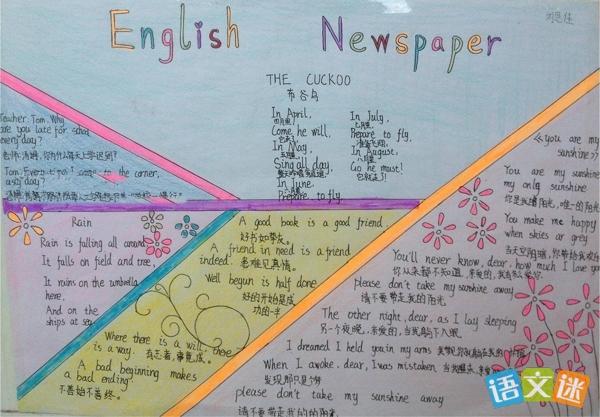 English Newspaper
THE CUCKOO
布谷鸟
In April,
四月里,
Come he will,
它来了,
In May,
五月里,
Sing all day,
In June,
六月里,
Prepare to fly.
In July,
七月里,
Prepare to fly,
准备飞翔,
In August,
八月里,
Go he must!
Teacher: Tom. Why
are you late for school
every day?
老师:汤姆,你为什么每天上学迟到?
Tom: Every to the corner,
Rain
Rain is falling all around,
It falls on field and tree,
It rains on the umbrella
here,
And on the
ships at sea.
A good book is a good friend.
好书如挚友。
A friend in need is a friend
indeed.
患难见真情。
Well begun is half done.
好的开始是成
功的一半
Where there is a will, there
is a way.
有志者,事竟成。
A bad beginning makes
a bad ending.
不善始不善终。
《you are my
sunshine》
You are my sunshine
my only sunshine
你是我的阳光,唯一的阳光
You make me happy
when skies are grey
You'll never know, dear, how much I love you
please don't take my sunshine away
请不要带走我的阳光
The other night, dear, as I lay sleeping
另一个夜晚,亲爱的,当我躺下入眠
I dreamed I held you in my arms
When I awoke, dear, I was mistaken
please don't take my sunshine away
请不要带走我的阳光
语文迷